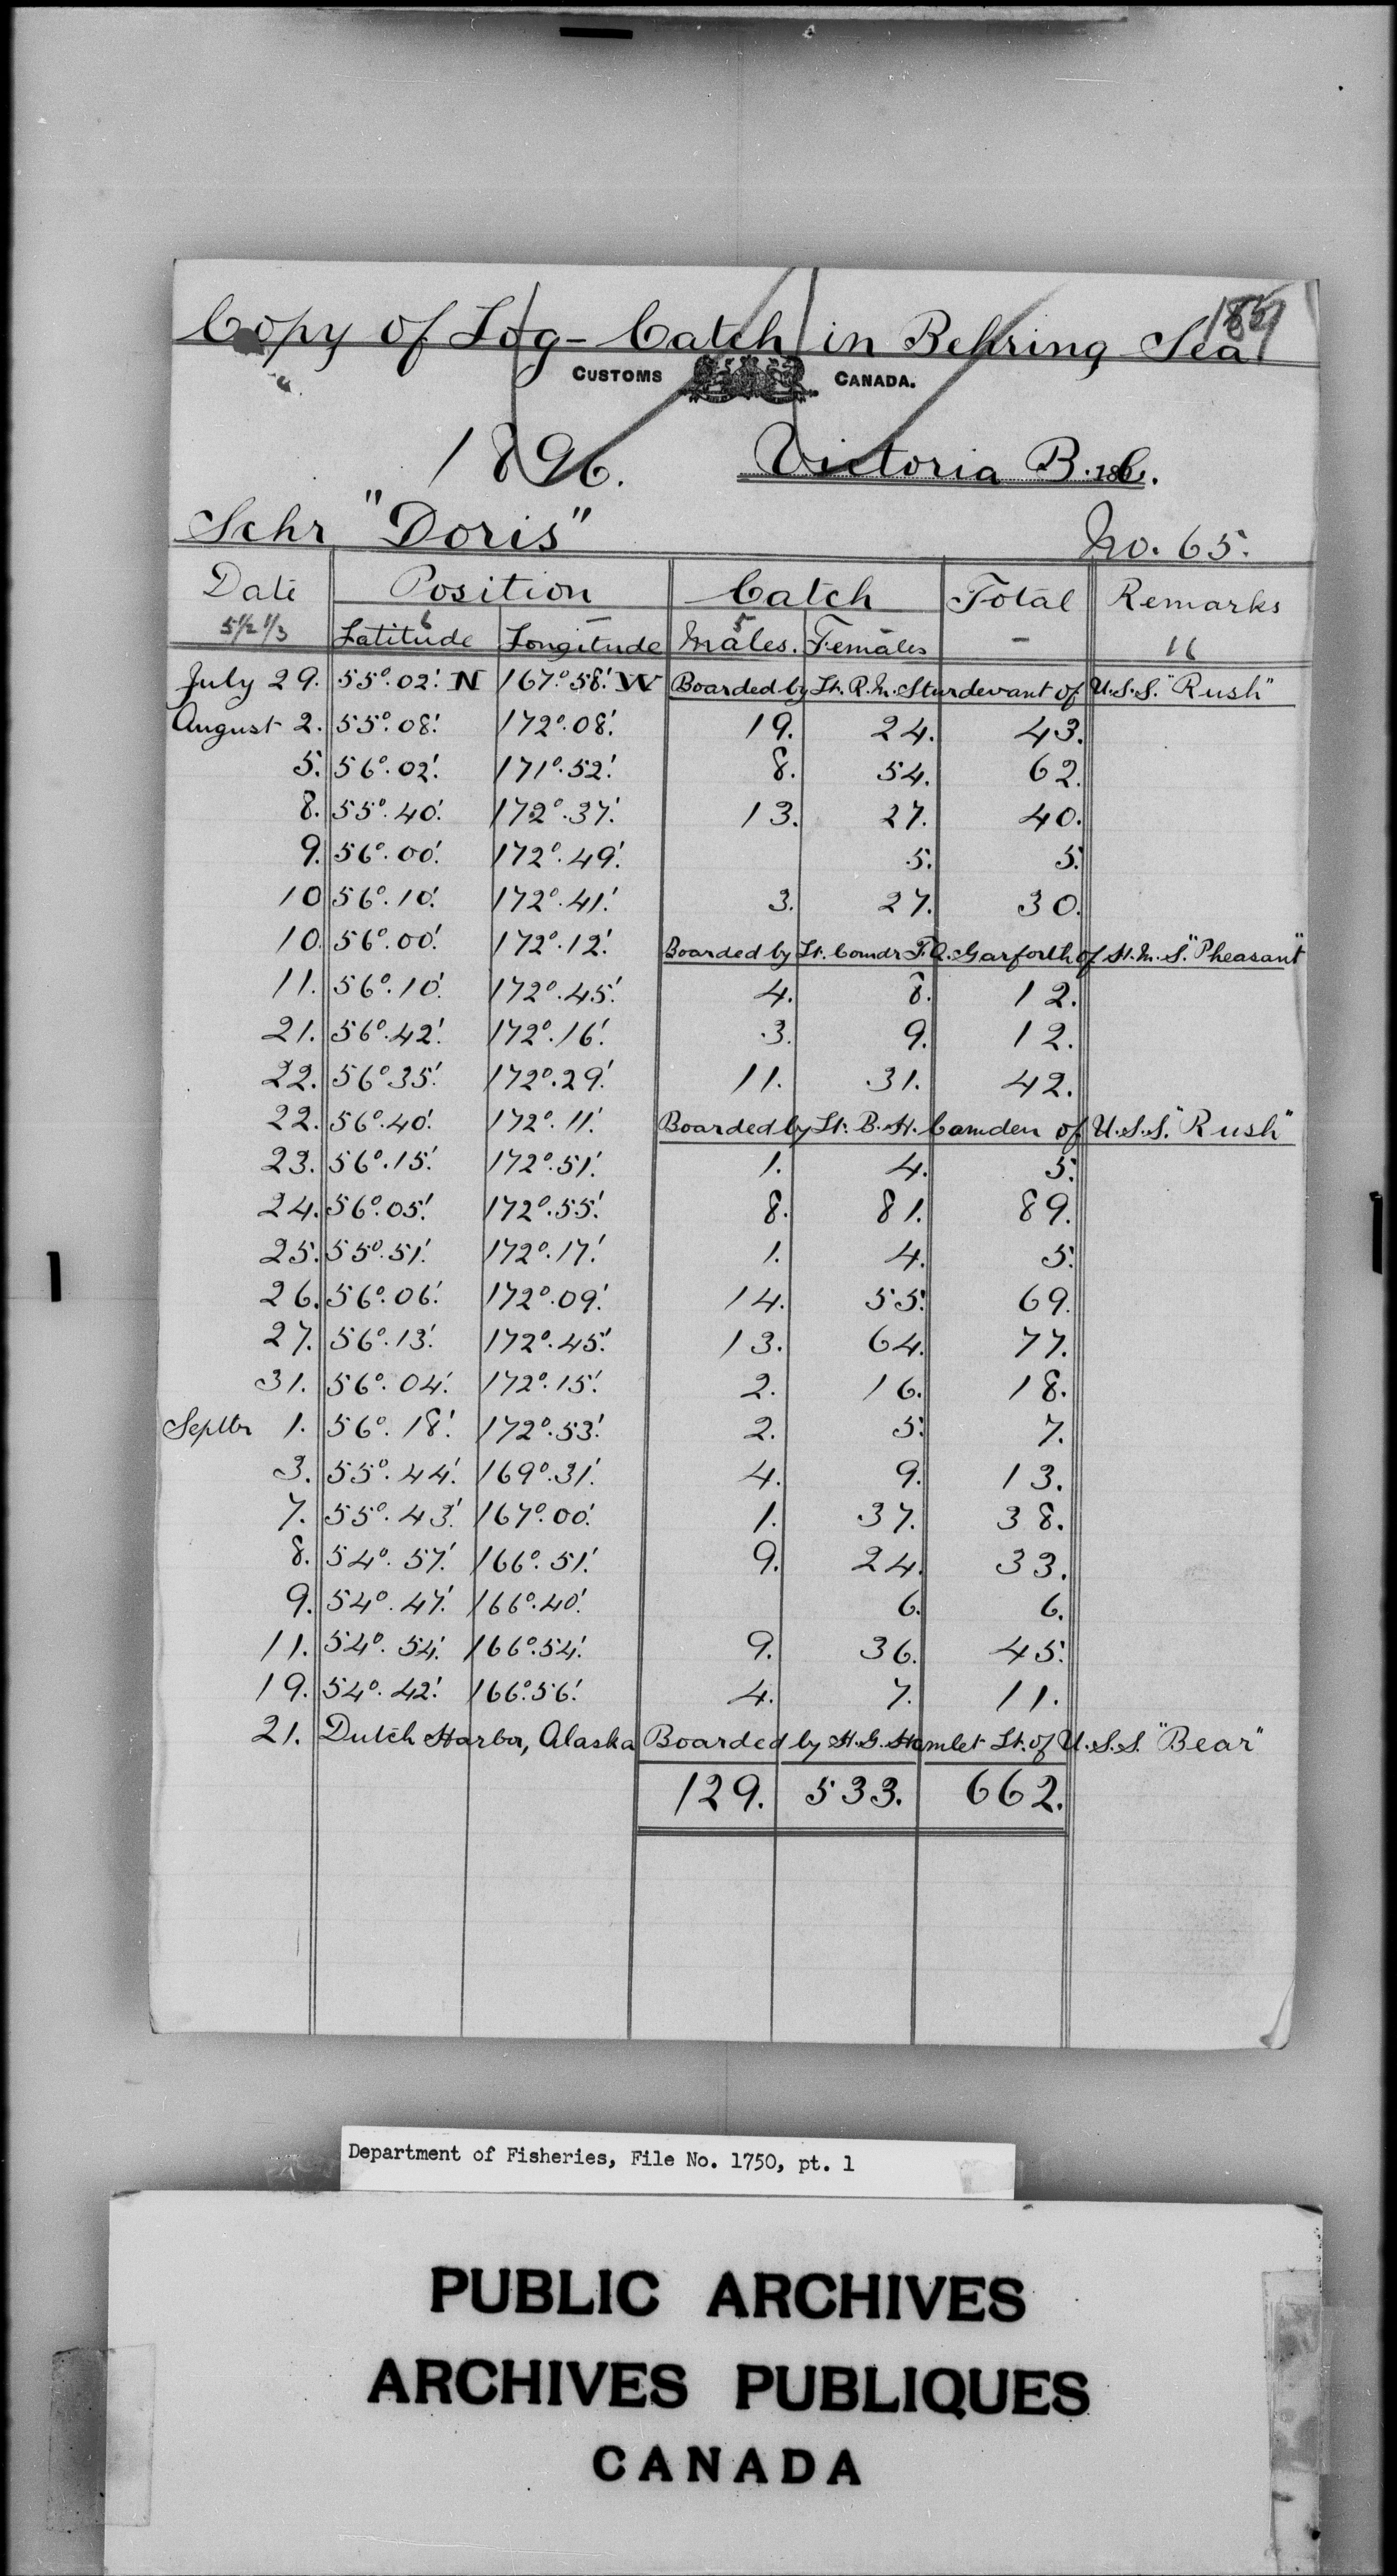 Copy of Log - Catch in Behring Sea
CUSTOMS CANADA.
1896. Victoria B.C.
Schr "Doris" No. 65.
Date Position Catch Total Remarks
Latitude Longitude Males. Females
July 29. 55°.02'. N 167°.58'. W Boarded by Lt. R. M. Sturdevant of U.S.S. "Rush"
August 2. 55°.08'. 172°.08'. 19. 24. 43.
5. 56°.02'. 171°.52'. 8. 54. 62.
8. 55°.40'. 172°.37'. 13. 27. 40.
9. 56°.00'. 172°.49'. 5. 5.
10 56°.10'. 172°.41'. 3. 27. 30.
10. 56°.00'. 172°.12'. Boarded by Lt. Comdr F. Q. Garforth of H.M.S. "Pheasant"
11. 56°.10'. 172°.45'. 4. 8. 12.
21. 56°.42'. 172°.16'. 3. 9. 12.
22. 56°.35'. 172°.29'. 11. 31. 42.
22. 56°.40'. 172°.11'. Boarded by Lt. B. H. Camden of U.S.S. "Rush"
23. 56°.15'. 172°.51'. 1. 4. 5.
24. 56°.05'. 172°.55'. 8. 81. 89.
25. 55°.51'. 172°.17'. 1. 4. 5.
26. 56°.06'. 172°.09'. 14. 55. 69.
27. 56°.13'. 172°.45'. 13. 64. 77.
31. 56°.04'. 172°.15'. 2. 16. 18.
Septbr 1. 56°.18'. 172°.53'. 2. 5. 7.
3. 55°.44'. 169°.31'. 4. 9. 13.
7. 55°.43'. 167°.00'. 1. 37. 38.
8. 54°.57'. 166°.51'. 9. 24. 33.
9. 54°.47'. 166°.40'. 6. 6.
11. 54°.54'. 166°.54'. 9. 36. 45.
19. 54°.42'. 166°.56'. 4. 7. 11.
21. Dutch Harbor, Alaska Boarded by H. G. Hamlet Lt. of U.S.S. "Bear"
129. 533. 662.
Department of Fisheries, File No. 1750, pt. 1
PUBLIC ARCHIVES
ARCHIVES PUBLIQUES
CANADA